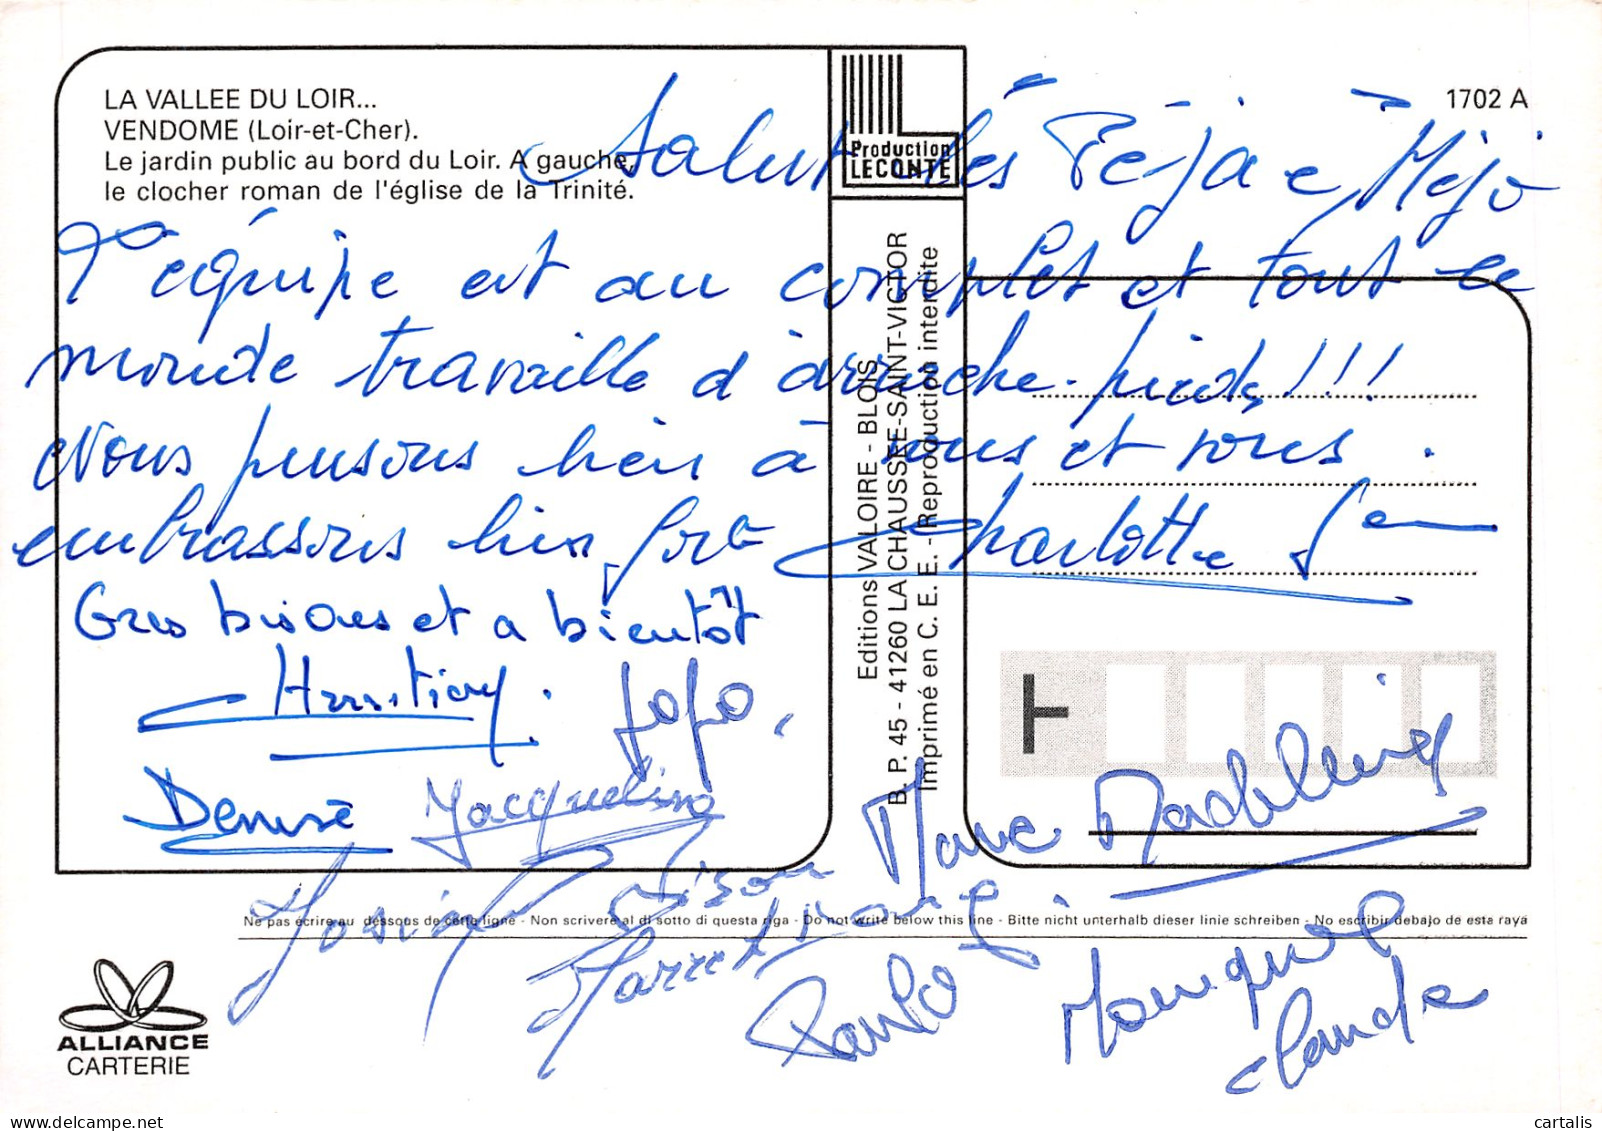 LA VALLEE DU LOIR...
VENDOME (Loir-et-Cher).
Le jardin public au bord du Loir. A gauche,
le clocher roman de l'église de la Trinité.
Production
LECONTE
1702 A
Salut les Péja e Méjo
l'équipe est au complet et tout le
monde travaille d'arrache-pieds!!!
Nous pensons bien à vous et vous
embrassons bien fort Charlotte
Gros bisous et a bientôt
Christian. Jojo.
Denise Jacqueline
Marc Madeleine
Josiane
Pierrette
Paulo Monique
Claude
Editions VALOIRE - BLOIS
B. P. 45 - 41260 LA CHAUSSEE-SAINT-VICTOR
Imprimé en C. E. E. - Reproduction interdite
Ne pas écrire au dessous de cette ligne - Non scrivere al di sotto di questa riga - Do not write below this line - Bitte nicht unterhalb dieser linie schreiben - No escribir debajo de esta raya
ALLIANCE
CARTERIE
cartalis